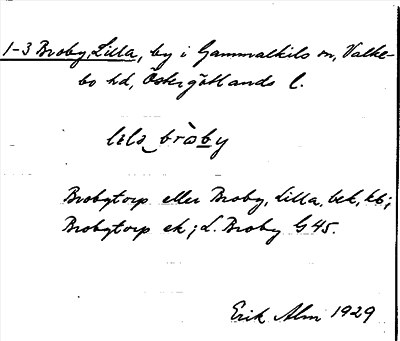 1-3 Broby, Lilla, by i Gammalkils sn, Valke-
bo hd, Östergötlands l.
lɩla bròby
Brobytorp eller Broby, Lilla, bek, kb;
Brobytorp ek; L. Broby G45.
Erik Alm 1929